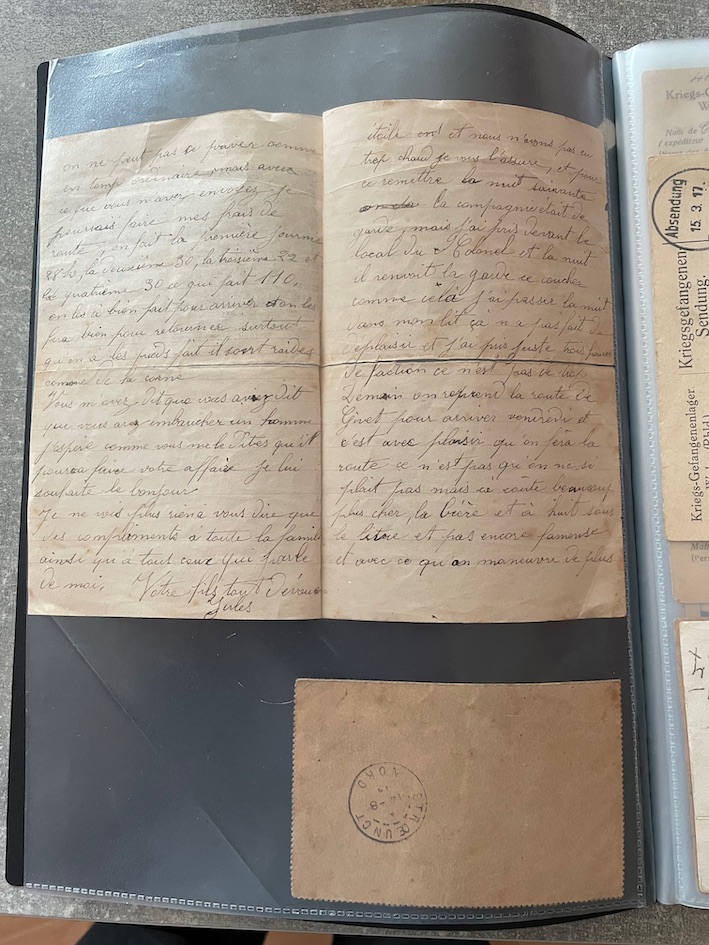 on ne peut pas ce priver comme
en temp ordinaire mais avec
ce que vous m'avez envoyez je
pouvais faire mes frais de
route, on fait la première journée
28 k, la deuxième 30, la troisième 22 et
la quatrième 30 ce qui fait 110,
on les a bien fait pour arriver et on les
fera bien pour retourner surtout
qu'on a les pieds fait il sont raides
comme de la corne
Vous m'avez dit que vous aviez dit
que vous avez embaucher un homme
j'espère comme vous me le dites qu'il
pourra faire votre affaire je lui
souhaite le bonjour.
Je ne vois plus rien a vous dire que
des compliments à toute la famille
ainsi qu'à tous ceux qui parle
de moi. Votre fils tout dévoué
Jules
étoile ond et nous n'avons pas eu
trop chaud je vous l'assure, et pour
ce remettre la nuit suivante
la compagnie était de
garde, mais j'ai pris devant le
local du Colonel et la nuit
il renvoit la garde ce coucher
comme cela j'ai passer la nuit
dans mon lit ça n'a pas fait de
deplaisir et j'ai pris juste trois heures
de faction ce n'est pas de trop
Demain on reprend la route de
Givet pour arriver vendredi et
c'est avec plaisir qu'on fera la
route ce n'est pas qu'on ne si
plait pas mais ça coûte beaucoup
plus cher, la bière et à huit sous
le litre et pas encore fameuse
et avec ce qu'on maneuvre de plus
ETRŒUNGT
NORD
Kriegs-G
Nom de
l'expéditeur
Absendung
15. 3. 17.
Kriegsgefangenen
Sendung.
Kriegs-Gefangenenlager